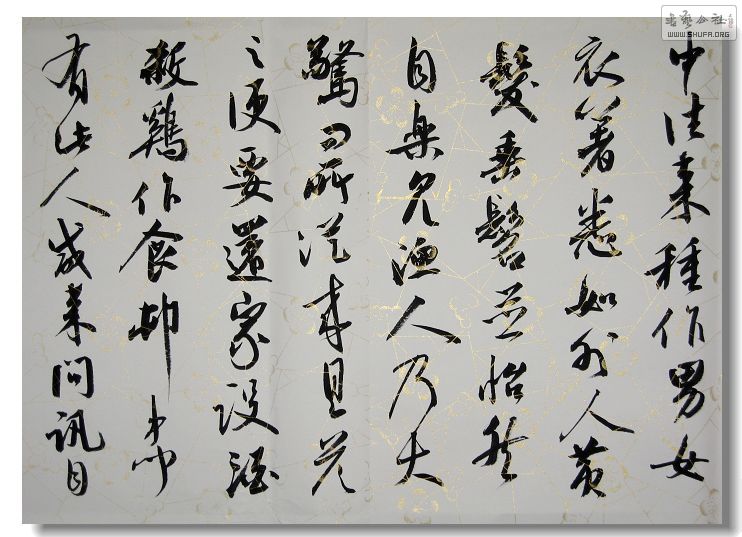 中往来種作男女
衣著悉如外人黄
髮垂髫並怡然
自樂見漁人乃大
驚問所從来具答
之便要還家設酒
殺鷄作食村中聞
有此人咸来問訊自
书艺公社
WWW.SHUFA.ORG